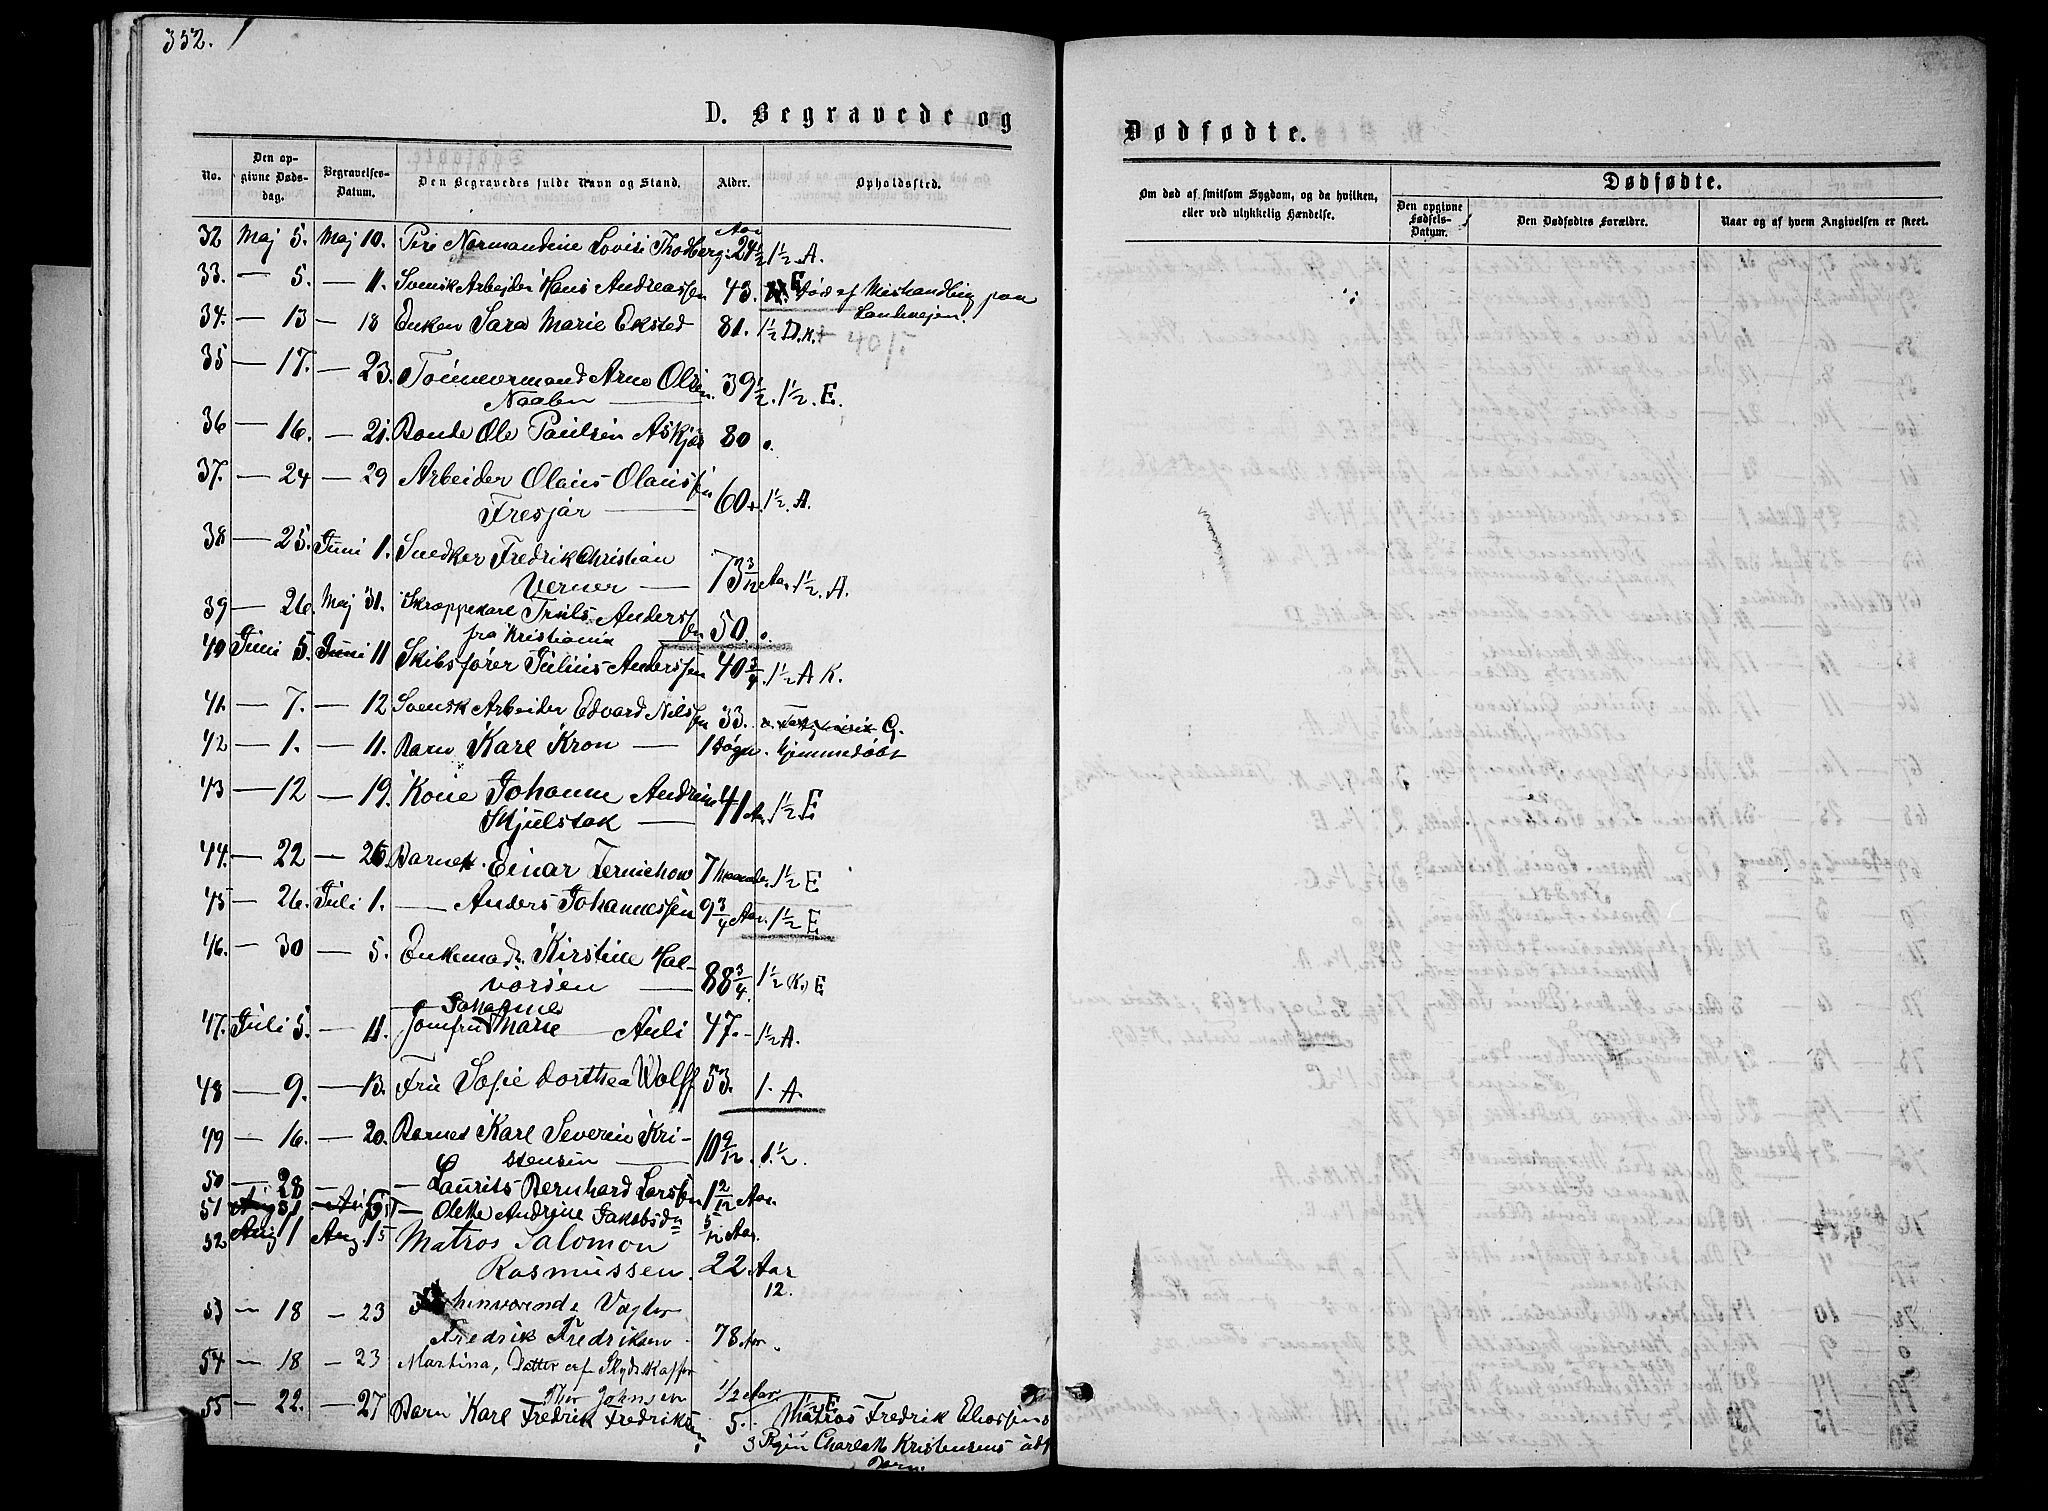 352.
D. Begravede og
No. Den opgivne Dødsdag. Begravelses-Datum. Den Begravedes fulde Navn og Stand. Alder. Opholdssted.
32 Maj 5. Maj 10. Normandine Lovise Thodberg. Aar 24½ 1½. A.
33. — 5. — 11. Svensk Arbejder Hans Andreassen 43. E død af Mishandling paa
Landevejen.
34. — 13 — 18 Enken Sara Marie Eksted 81. 1½ D.K.
35 — 17. — 23. Tømmermand Arne Olsen 39½. 1½. E.
Naalen —
36 — 16. — 21. Bonde Ole Paulsen Askjær 80 o.
37. — 24 — 29 Arbeider Olaus Olaussen
Fresjar — 60. 1½. A.
38 — 25. Juni 1. Snedker Fredrik Christian
Verner — 73 3/12 Aar. 1½. A.
39 — 26. Maj 31. Skræppekarl Truls Anderssen
fra Kristiania 50. o.
40 Juni 5. Juni 11 Skibsfører Julius Anderssen 40¾. 1½ A K.
41. — 7. — 12 Svensk Arbeider Edvard Nilssen 33. G.
42 — 1. — 11. Barn Karl Kron — 1 Døgn. hjemmedøbt
43 — 12 — 19. Kone Johanne Andrine 41 Aar. 1½ E
Skjulstak —
44. — 22 — 26. Barnet. Einar Ternichow 7 Maaneder. 1½ E
45 — 26. Juli 1. — Anders Johannessen 9¾ Aar. 1½ E
46. — 30 — 5. Enkemad. Kirstine Hal-
vorsen — 88¾. 1½ (K.) E
Johanne
47. Juli 5. — 11. Jomfru Marie — Auli 47. 1½ A.
48 — 9. — 13. Fru Sofie Dorthea Wolff 53. 1. A.
49 — 16. — 20. Barnet Karl Severin Kri-
stensen — 10 9/12. 1½.
50 — 28 — — Laurits Bernhard Larssen 1 2/12 Aar.
51 31 — Olette Andrine Jakobsdn 5/12 Aar.
52 Aug 11 Aug. 15 Matros Salomon
Rasmussen. 22 Aar
12.
53 — 18 — 23 Vagter
Fredrik Fredriksen 78 Aar.
54 — 18 — 23 Martina, Datter af Skydskaffer
Thor Johnsen ½ Aar
55 — 22. — 27 Barn Karl Fredrik Fredriksen, 5. 1½ E Matros Fredrik
3 Pigen Kristensens
Barn.
Dødfødte.
Om død af smitsom Sygdom, og da hvilken, eller ved ulykkelig Hændelse.
Dødfødte.
Den opgivne Fødsels-Datum. Den Dødfødtes Forældre. Naar og af hvem Angivelsen er skeet.